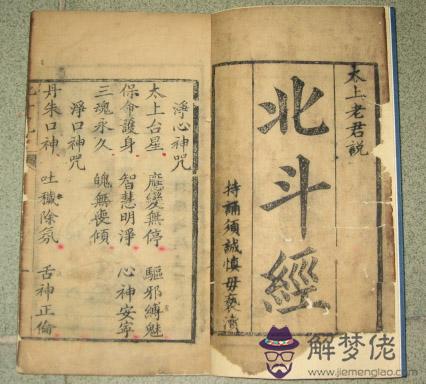 太上老君說
北斗經
持誦須誠慎毋褻瀆
淨心神咒
太上台星 應變無停 驅邪縛魅
保命護身 智慧明淨 心神安寧
三魂永久 魄無喪傾
淨口神咒
丹朱口神 吐穢除氛 舌神正倫
解梦佬
www.jiemenglao.com